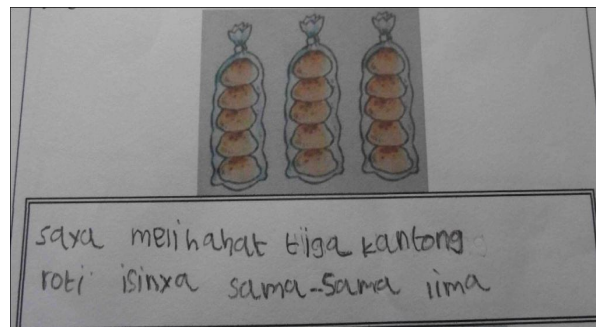 saya melihahat tiga kantong
roti isinya sama-sama lima